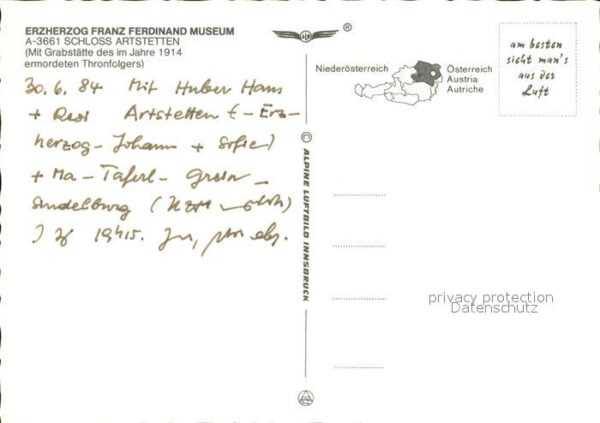 ERZHERZOG FRANZ FERDINAND MUSEUM
A-3661 SCHLOSS ARTSTETTEN
(Mit Grabstätte des im Jahre 1914
ermordeten Thronfolgers)
30. 6. 84 Mit Huber Hans
+ Resi Artstetten (-Erz-
herzog - Johann + Sofie)
+ Ma-Taferl - Grein -
®
Niederösterreich
Österreich
Austria
Autriche
am besten
sieht man's
aus der
Luft
© ALPINE LUFTBILD INNSBRUCK
privacy protection
Datenschutz